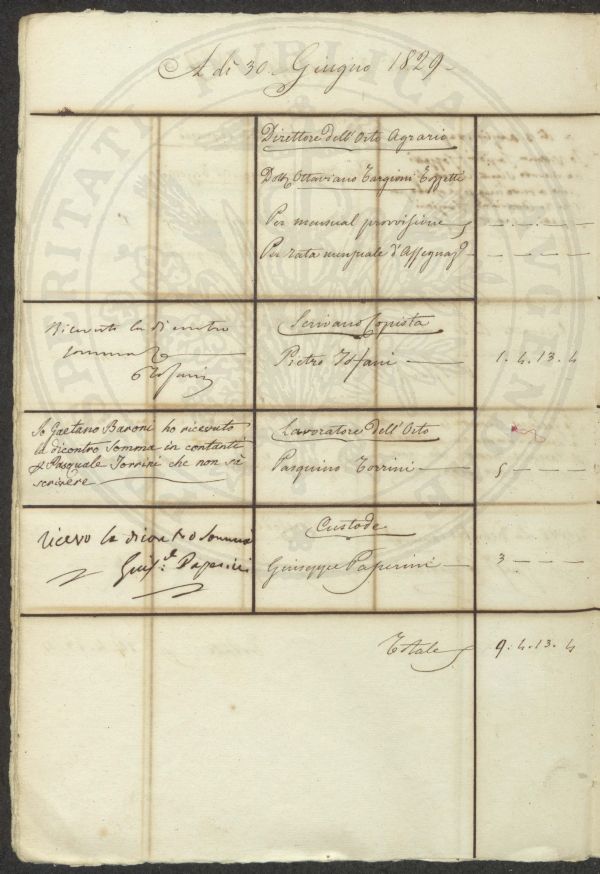 A di 30. Giugno 1829-
Direttore dell'Orto Agrario
Dottr. Ottaviano Targioni Tozzetti
Per mensual provvisione
Per rata mensuale d'Assegnazne
Ricevuto la di contro
somma
P Tofani
Scrivano Copista
Pietro Tofani — 1. 4. 13. 4
Io Gaetano Baroni ho ricevuto
la dicontro Somma in contanti
Pasquale Torrini che non sà
scrivere
Lavoratore dell'Orto
Pasquino Torrini — 5 — — —
ricevo la dicontro Somma
Guise. Paperini
Custode
Giuseppe Paperini — 3 — — —
Totale 9. 4. 13. 4